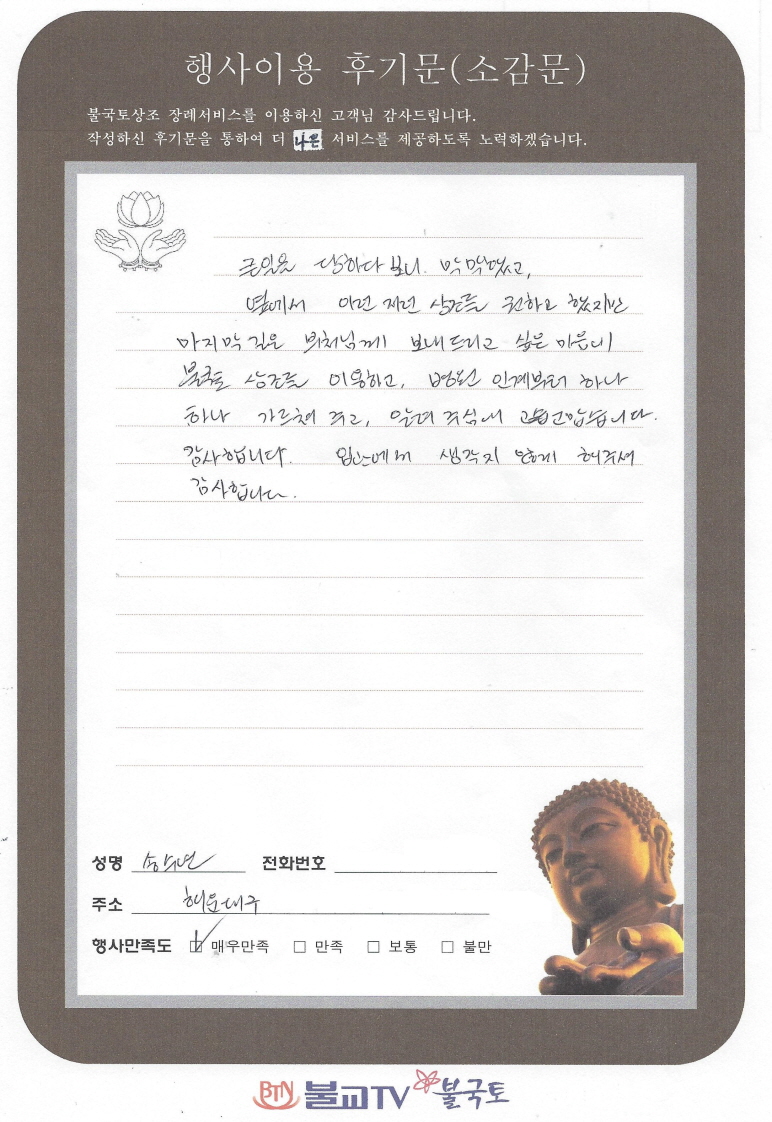 행사이용 후기문(소감문)
불국토상조 장례서비스를 이용하신 고객님 감사드립니다.
작성하신 후기문을 통하여 더 나은 서비스를 제공하도록 노력하겠습니다.
큰일을 당하다 보니 막막했고,
옆에서 이런 저런 상조를 권하고 했지만
마지막 길은 부처님께 보내드리고 싶은 마음에
불국토 상조를 이용하고, 병원 인계부터 하나
하나 가르쳐 주고, 알려 주심에 고맙습니다.
감사합니다. 입산에서 생각지 않게 해주셔
감사합니다.
성명 전화번호
주소 해운대구
행사만족도 ☑ 매우만족 □ 만족 □ 보통 □ 불만
BTN 불교TV 불국토